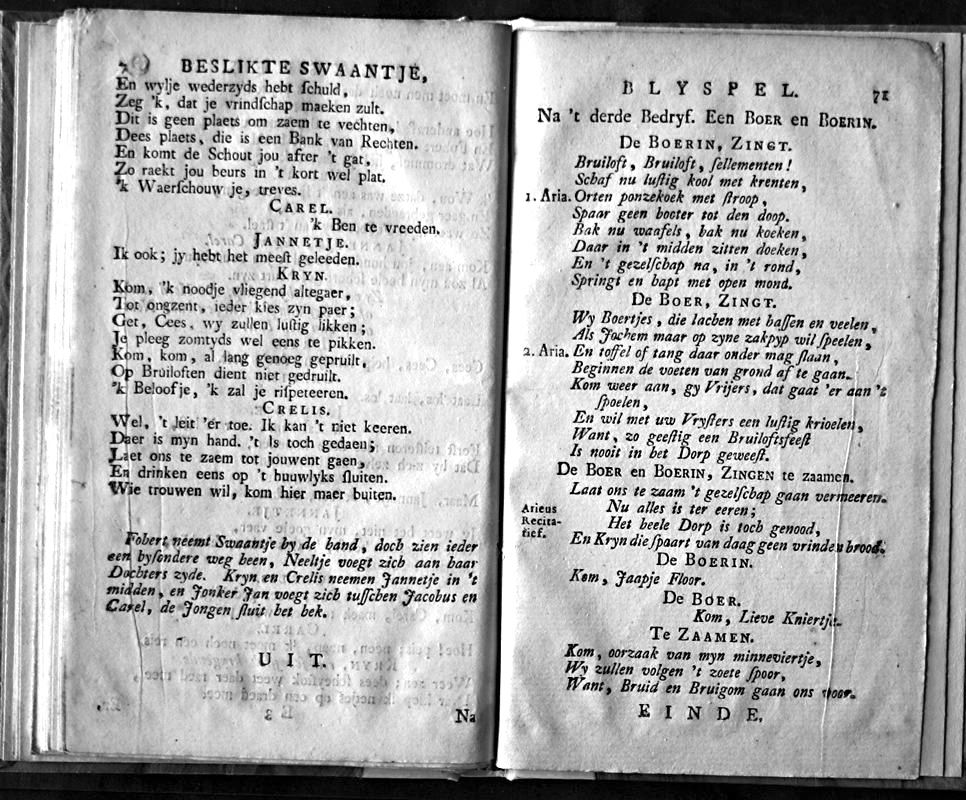 70 BESLIKTE SWAANTJE,
En wylje wederzyds hebt ſchuld,
Zeg 'k, dat je vrindſchap maeken zult.
Dit is geen plaets om zaem te vechten,
Dees plaets, die is een Bank van Rechten.
En komt de Schout jou after 't gat,
Zo raekt jou beurs in 't kort wel plat.
'k Waerſchouw je, treves.
CAREL.
'k Ben te vreeden.
JANNETJE.
Ik ook; jy hebt het meeſt geleeden.
KRYN.
Kom, 'k noodje vliegend altegaer,
Tot ongzent, ieder kies zyn paer;
Get, Cees, wy zullen luſtig likken;
Je pleeg zomtyds wel eens te pikken.
Kom, kom, al lang genoeg gepruilt,
Op Bruiloften dient niet gedruilt.
'k Beloofje, 'k zal je riſpeteeren.
CRELIS.
Wel, 't leit 'er toe. Ik kan 't niet keeren.
Daer is myn hand. 't Is toch gedaen;
Laet ons te zaem tot jouwent gaen,
En drinken eens op 't huuwlyks ſluiten.
Wie trouwen wil, kom hier maer buiten.
Fobert neemt Swaantje by de hand, doch zien ieder
een byſondere weg been, Neeltje voegt zich aan haar
Dochters zyde. Kryn en Crelis neemen Jannetje in 't
midden, en Jonker Jan voegt zich tuſſchen Jacobus en
Carel, de Jongen ſluit het hek.
UIT.
E 3 Na
BLYSPEL. 71
Na 't derde Bedryf. Een BOER en BOERIN.
De BOERIN, ZINGT.
Bruiloft, Bruiloft, ſellementen!
Schaf nu luſtig kool met krenten,
1. Aria. Orten ponzekoek met ſtroop,
Spaar geen booter tot den doop.
Bak nu waafels, bak nu koeken,
Daar in 't midden zitten doeken,
En 't gezelſchap na, in 't rond,
Springt en hapt met open mond.
De BOER, ZINGT.
Wy Boertjes, die lachen met baſſen en veelen,
Als Jochem maar op zyne zakpyp wil ſpeelen,
2. Aria. En toffel of tang daar onder mag ſlaan,
Beginnen de voeten van grond af te gaan.
Kom weer aan, gy Vrijers, dat gaat 'er aan 't
ſpoelen,
En wil met uw Vryſters een luſtig krioelen,
Want, zo geeſtig een Bruiloftsfeeſt
Is nooit in het Dorp geweeſt.
De BOER en BOERIN, ZINGEN te zaamen.
Laat ons te zaam 't gezelſchap gaan vermeeren.
Arieus Recita-tief. Nu alles is ter eeren;
Het heele Dorp is toch genood,
En Kryn die ſpaart van daag geen vrinden brood.
De BOERIN.
Kom, Jaapje Floor.
De BOER.
Kom, Lieve Kniertje.
Te ZAAMEN.
Kom, oorzaak van myn minneviertje,
Wy zullen volgen 't zoete ſpoor,
Want, Bruid en Bruigom gaan ons voor.
EINDE.